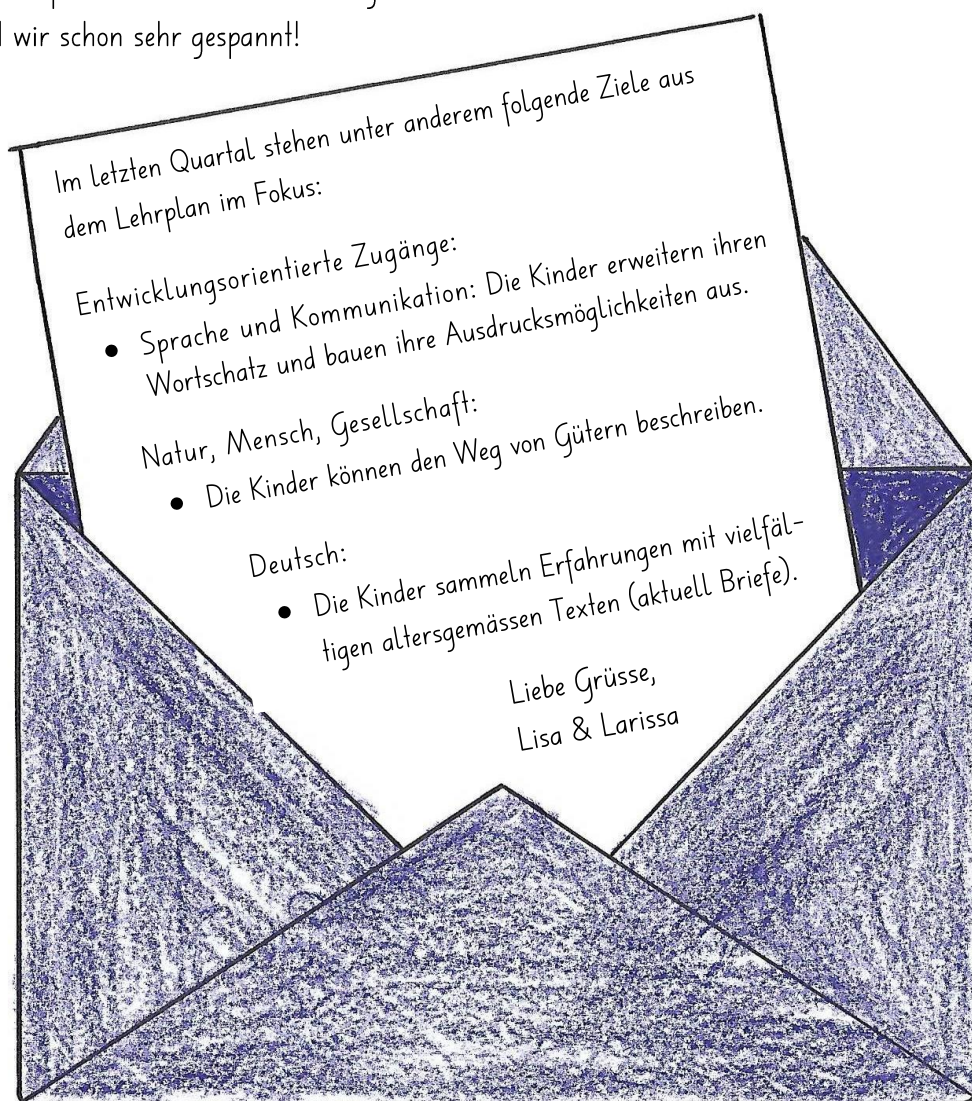 wir schon sehr gespannt!
Im letzten Quartal stehen unter anderem folgende Ziele aus
dem Lehrplan im Fokus:
Entwicklungsorientierte Zugänge:
• Sprache und Kommunikation: Die Kinder erweitern ihren
Wortschatz und bauen ihre Ausdrucksmöglichkeiten aus.
Natur, Mensch, Gesellschaft:
• Die Kinder können den Weg von Gütern beschreiben.
Deutsch:
• Die Kinder sammeln Erfahrungen mit vielfäl-
tigen altersgemässen Texten (aktuell Briefe).
Liebe Grüsse,
Lisa & Larissa